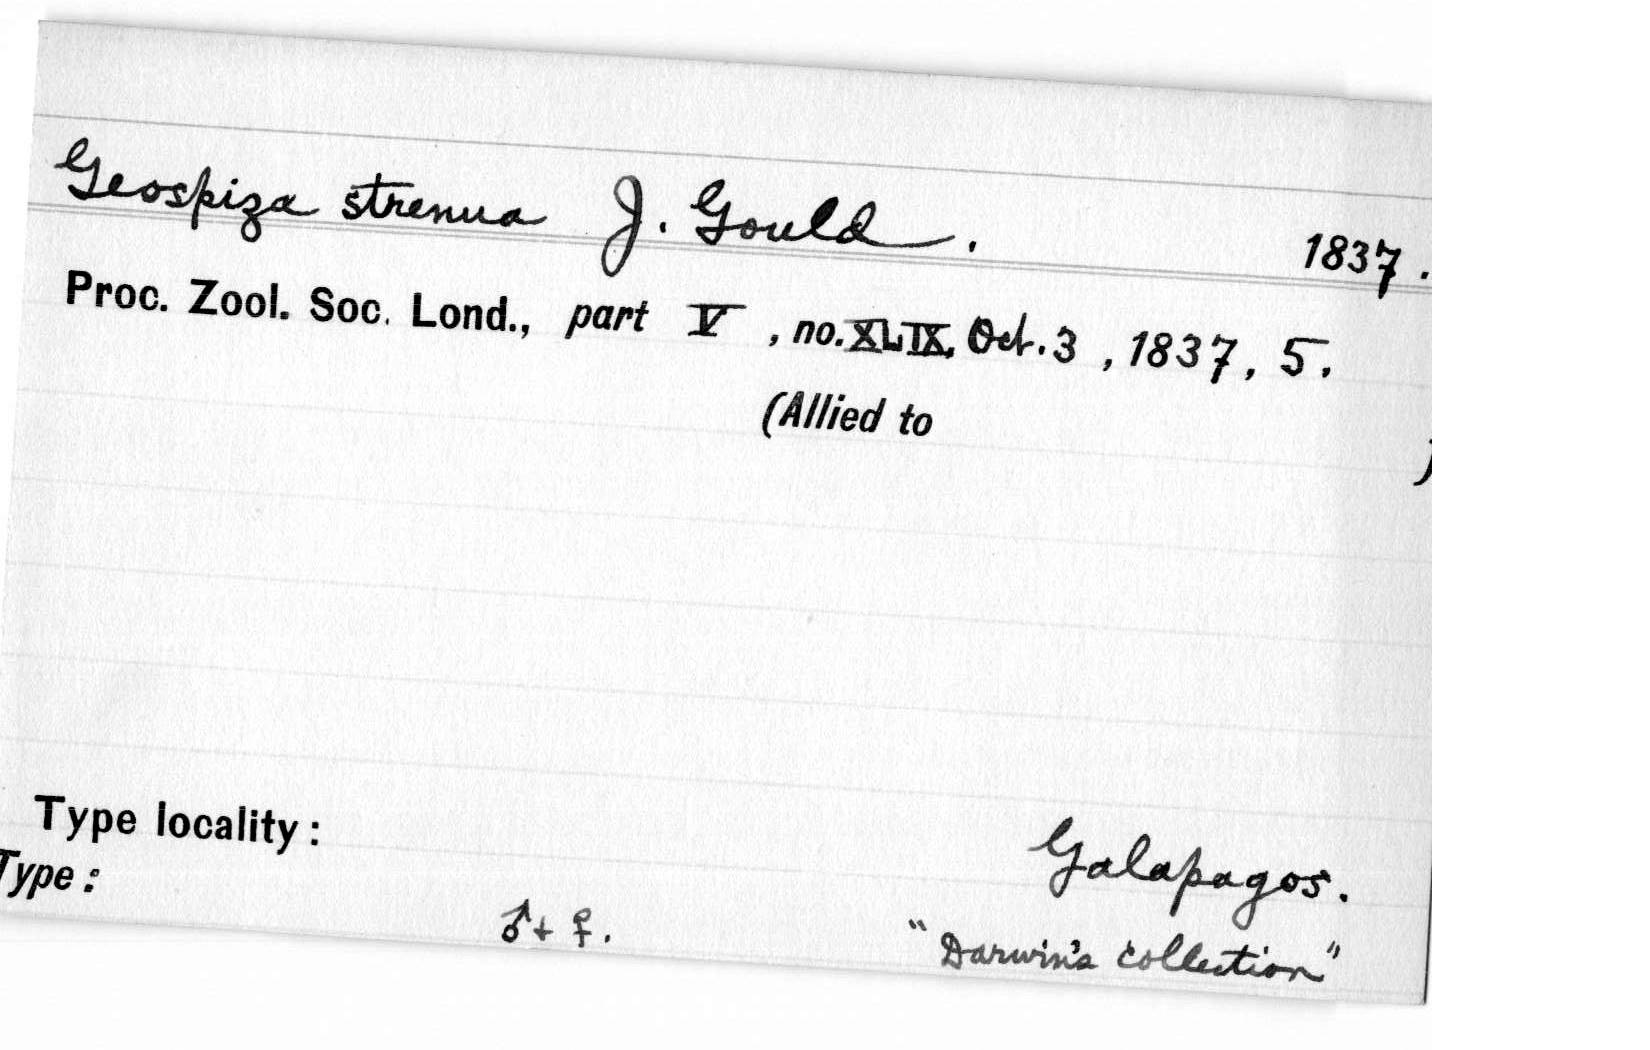 Geospiza strenua J. Gould. 1837.
Proc. Zool. Soc. Lond., part V, no. XLIX, Oct. 3, 1837, 5.
(Allied to )
Type locality: Galapagos.
Type: ♂ + ♀. "Darwin's collection"